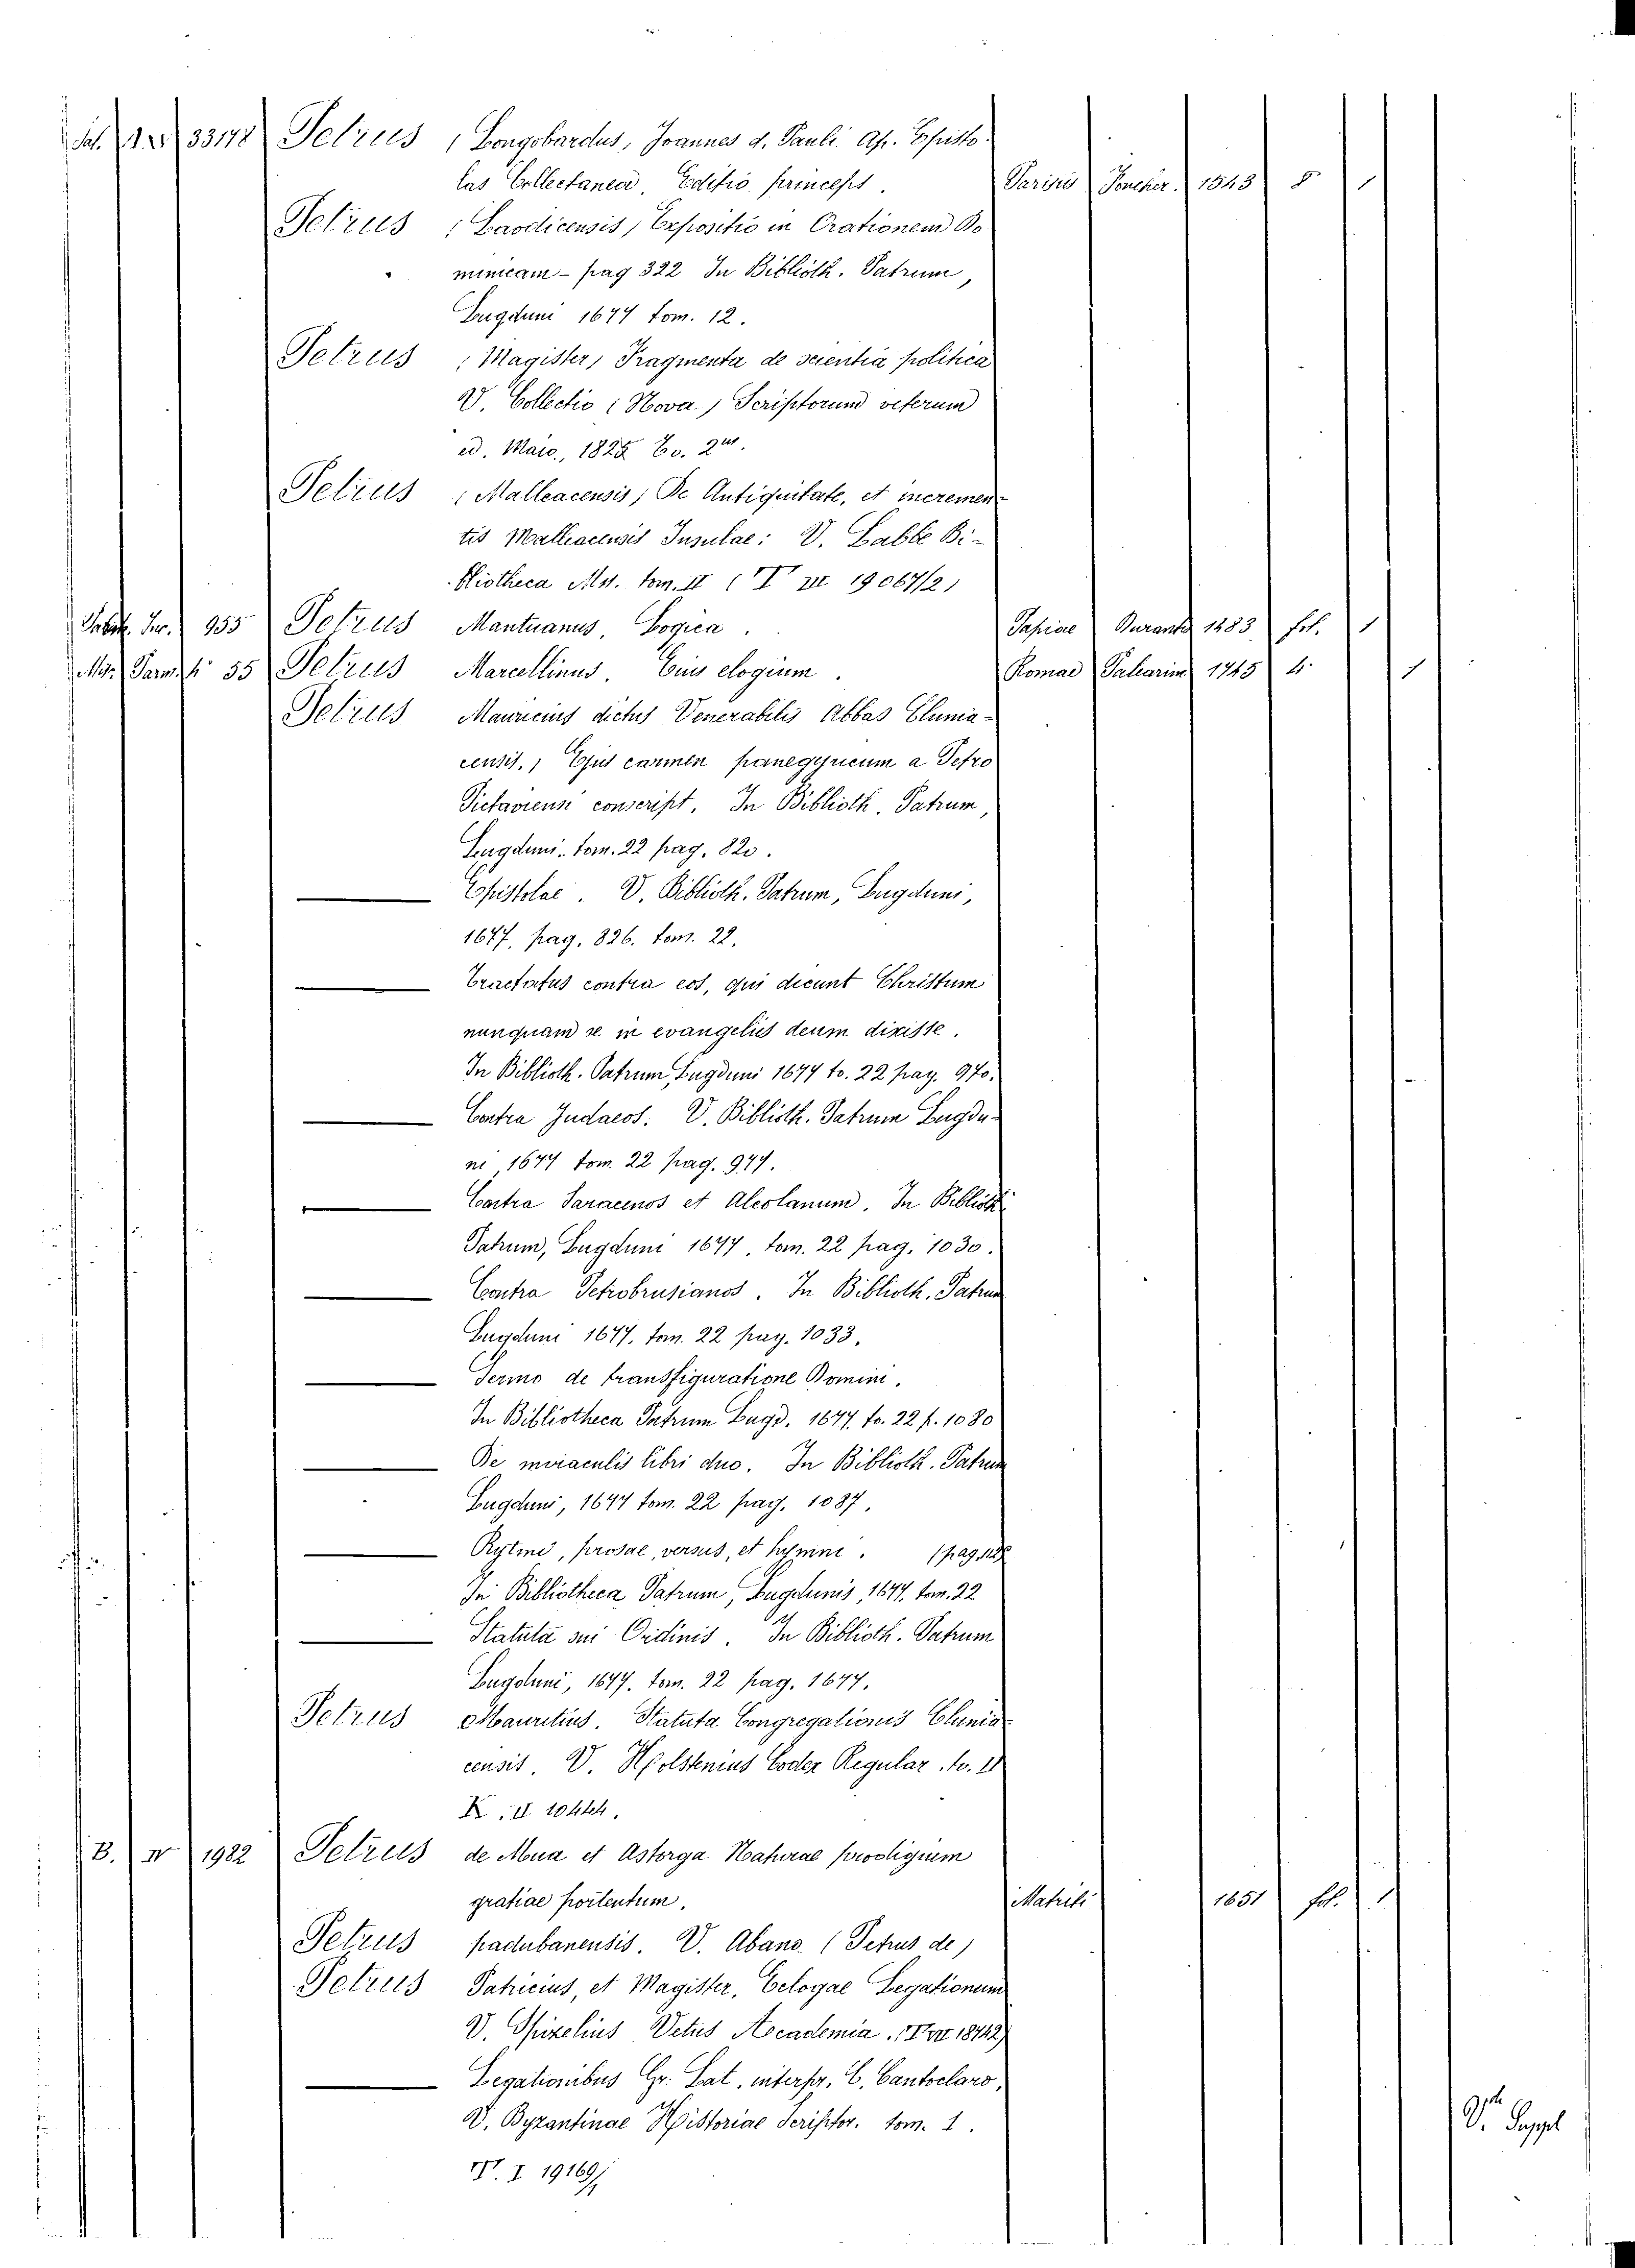 33178 Petrus (Longobardus, Joannes d. Pauli Ap. Episto-
las Collectanea, Editio princeps. Parisiis 1543 8 1
Petrus (Laodicensis) Expositio in Orationem Do-
minicam - pag 322 In Biblioth. Patrum,
Lugduni 1677 tom. 12.
Petrus (Magister) Fragmenta de scientia politica
V. Collectio (Nova) Scriptorum veterum
ed. Maio,
Petrus (Malleacensis) De Antiquitate, et incremen-
tis Malleacensis Insulae: V. Labbe Bi-
bliotheca Mss. tom. II (T III 19067/2)
955 Petrus Mantuanus, Logica. Papiae 1483 fol. 1
55 Petrus Marcellinus, Eius elogium. Romae Palearini 1745 4. 1
Petrus Mauricius dictus Venerabilis Abbas Clunia-
censis.) Ejus carmen panegyricum a Petro
Pictaviensi conscript. In Biblioth. Patrum,
Lugduni. tom. 22 pag. 820.
Epistolae. V. Biblioth. Patrum, Lugduni,
1677, pag. 826. tom. 22.
Tractatus contra eos, qui dicunt Christum
nunquam se in evangeliis deum dixisse.
In Biblioth. Patrum, Lugduni 1677 to. 22 pag. 970.
Contra Judaeos. V. Biblioth. Patrum Lugdu-
ni, 1677 tom. 22 pag. 977.
Contra Saracenos et Alcolanum. In Biblioth
Patrum, Lugduni 1677, tom. 22 pag. 1030.
Contra Petrobrusianos. In Biblioth. Patrum
Lugduni 1677. tom. 22 pag. 1033.
Sermo de transfiguratione Domini.
In Bibliotheca Patrum Lugd. 1677. to. 22 p. 1080
De miraculis libri duo. In Biblioth. Patrum
Lugduni, 1677 tom. 22 pag. 1087.
Rytmi, prosae, versus, et hymni.
In Bibliotheca Patrum, Lugdunis, 1677. tom. 22
Statuta sui Ordinis. In Biblioth. Patrum
Lugduni, 1677. tom. 22 pag. 1677.
Petrus Mauritius. Statuta Congregationis Clunia-
censis. V. Holstenius Codex Regular. to. II
K. II.
B. IV 1982 Petrus de Mua et Astorga Naturae prodigium
gratiae portentum. Matriti 1651 fol. 1
Petrus padubanensis. V. Abano (Petrus de)
Petrus Patricius, et Magister, Eclogae Legationum
V. Spizelius Vetus Academia.
Legationibus Gr. Lat. interpr. C. Cantoclaro,
V. Byzantinae Historiae Scriptor. tom. 1.
T. I 19169)